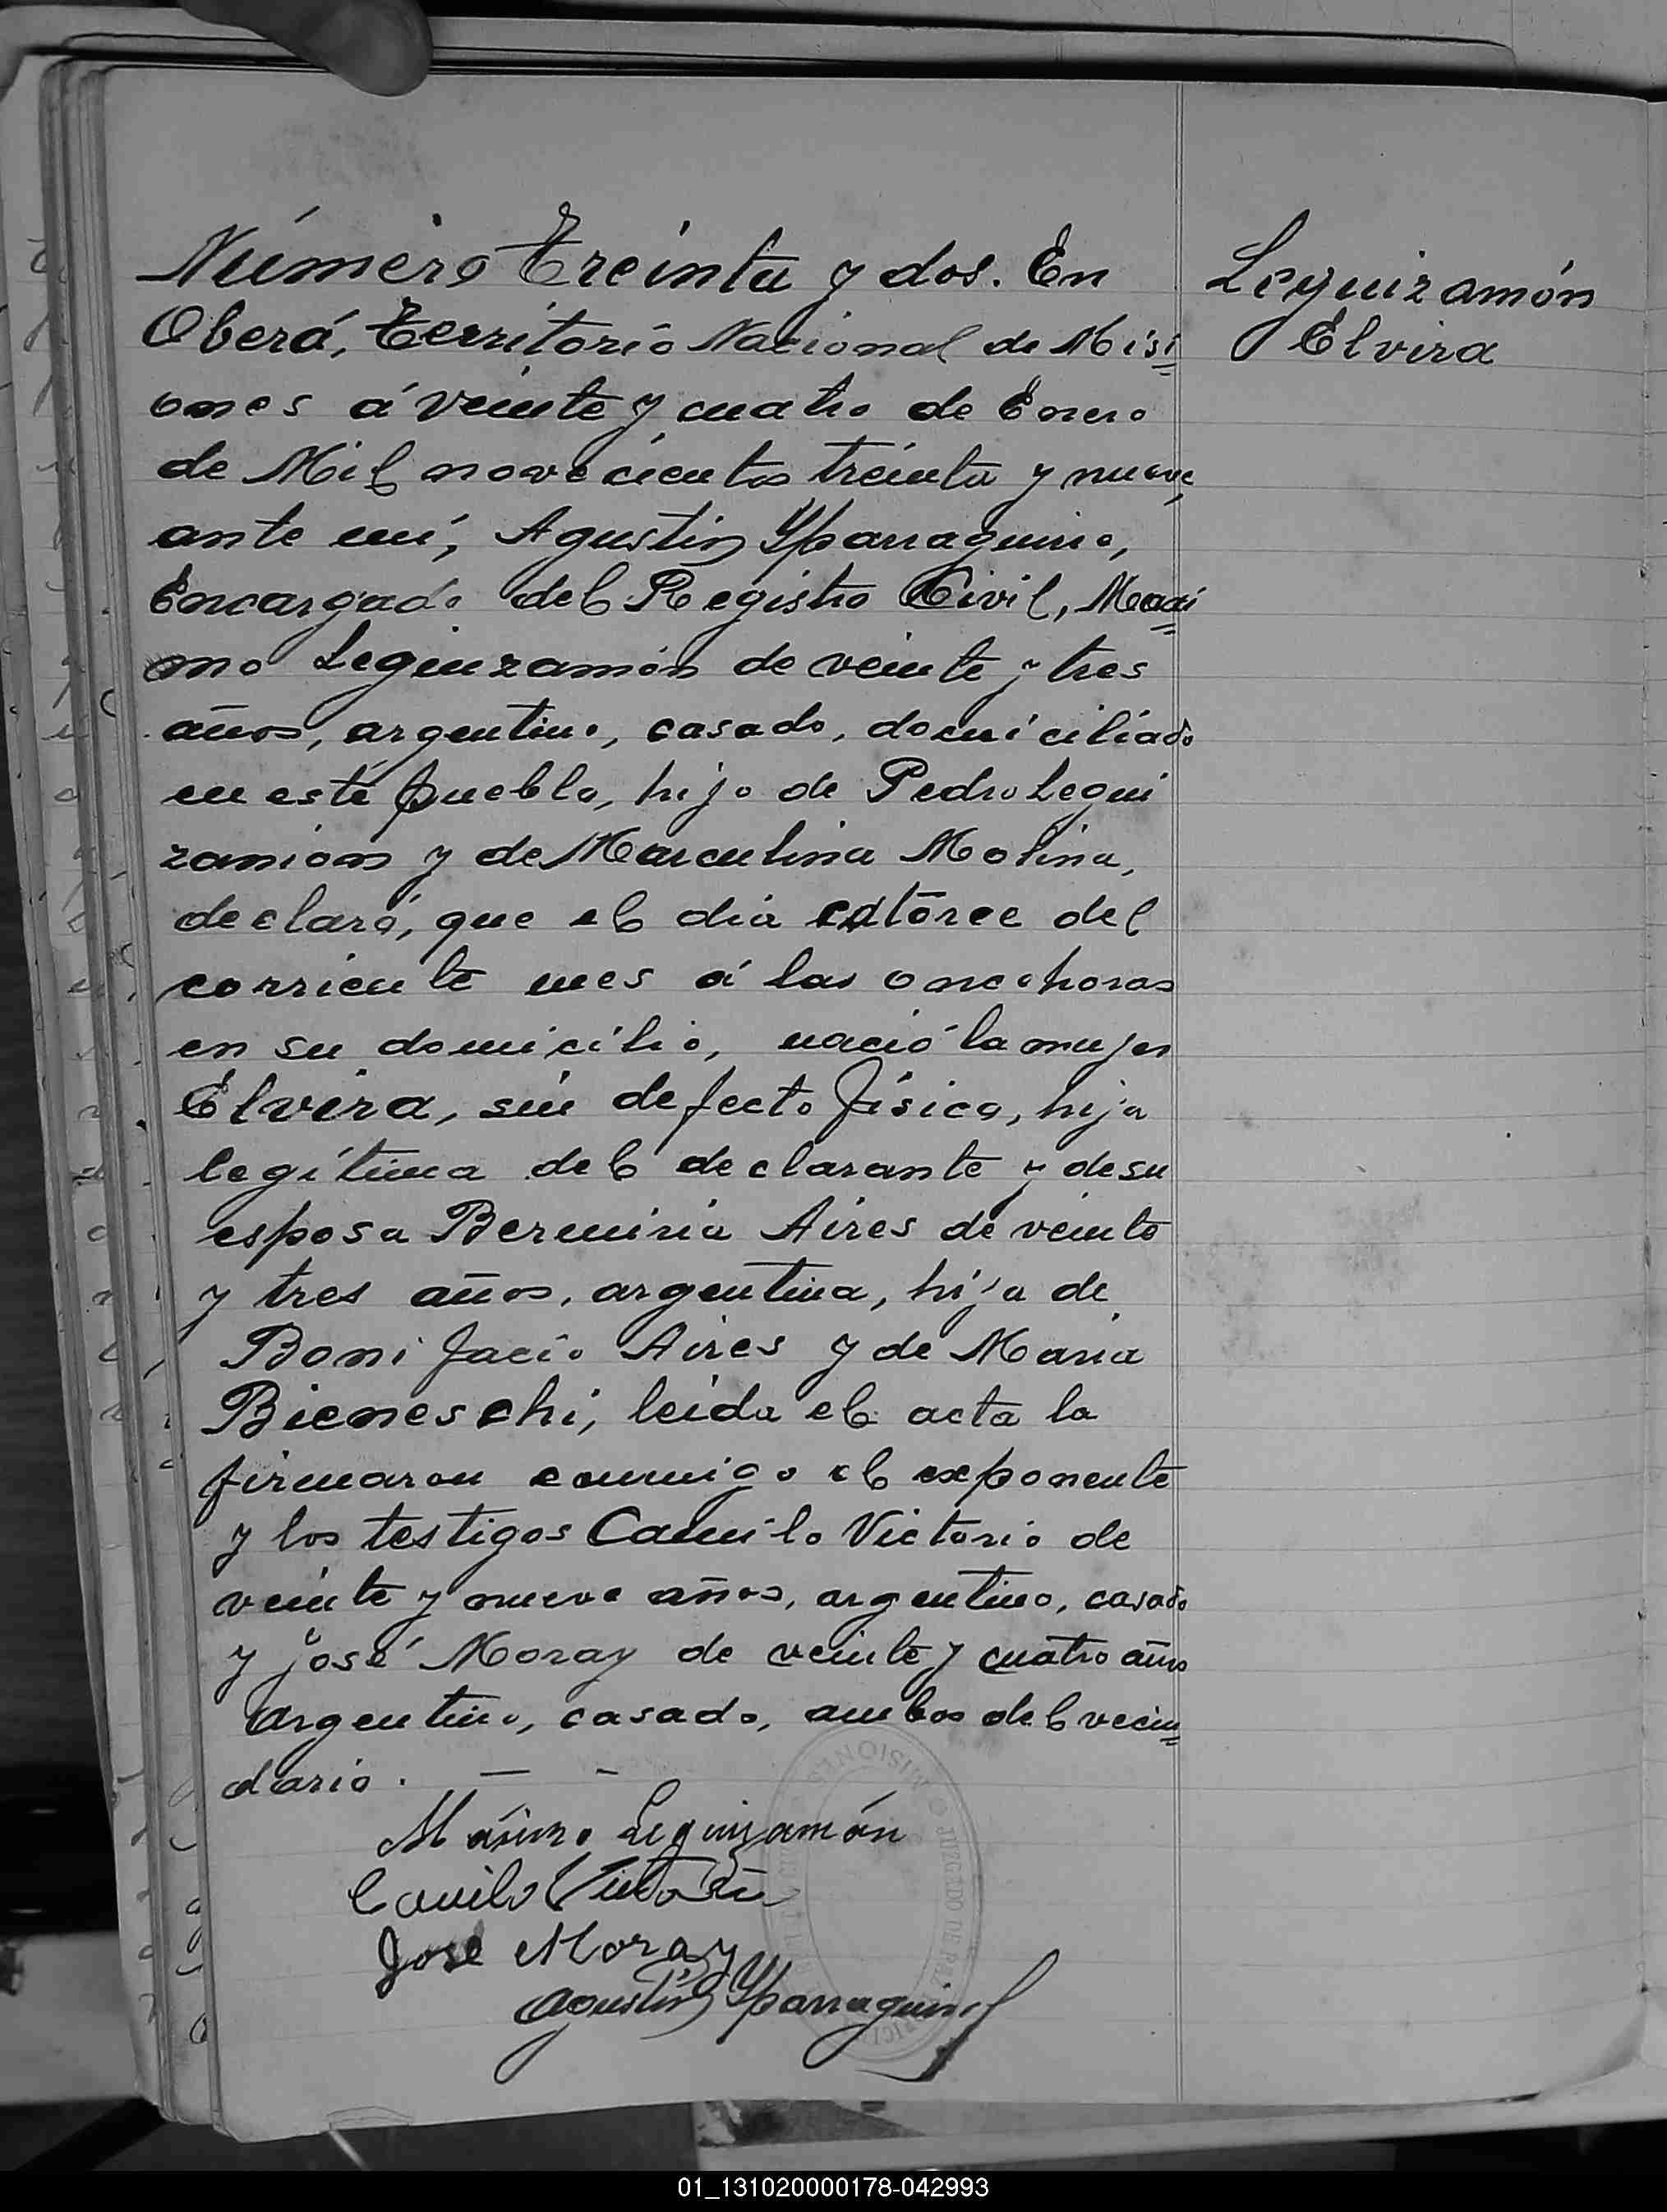 Número Treinta y dos. En
Leguizamón
Elvira
Oberá, Territorio Nacional de Misi=
ones á veinte y cuatro de Enero
de Mil novecientos treinta y nueve,
ante mí, Agustín Yparraguirre,
Encargado del Registro Civil, Maxi=
mo Leguizamón de veinte y tres
años, argentino, casado, domiciliado
en este pueblo, hijo de Pedro Legui
zamión y de Marculina Molina,
declaró, que el dia catorce del
corriente mes á las once horas
en su domicilio, nació la mujer
Elvira, sin defecto físico, hija
legítima del declarante y de su
esposa Berminia Aires de veinte
y tres años, argentina, hija de
Bonifacio Aires y de Maria
Bieneschi, leida el acta la
firmaron conmigo el exponente
y los testigos Camilo Victorio de
veinte y nueve años, argentino, casado
y José Moray de veinte y cuatro años
argentino, casado, ambos del vecin=
dario. — —
Máximo Leguizamón
Camilo Victorio
José Moray
Agustín Yparraguirre
MISIONES
JUZGADO DE PAZ
01_131020000178-042993